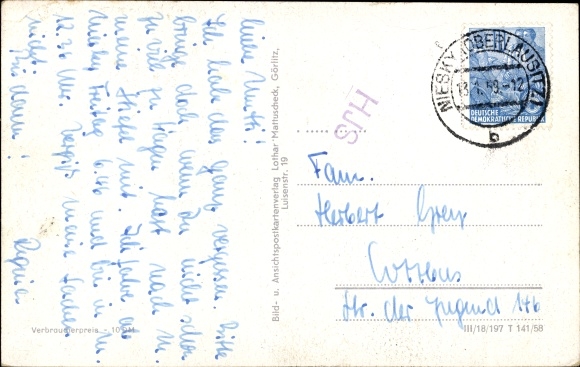 Liebe Mutti!
Ich habe das ganz vergessen. Bitte
bringe doch wenn Du nicht schon
zu viel zu tragen hast noch
meine Stiefel mit. Ich fahre am
Freitag 6.46 und bin in
12.30 Uhr. Vergiß meine Sachen
nicht.
Bis dann!
Regina
Verbraucherpreis - 10 DM
Bild- u. Ansichtspostkartenverlag Lothar Mattuscheck, Görlitz,
Luisenstr. 19
NIESKY (OBERLAUSITZ)
58-12
b
DEUTSCHE
DEMOKRATISCHE REPUBLIK
Fam.
Herbert
Cottbus
Str. der Jugend 146
III/18/197 T 141/58